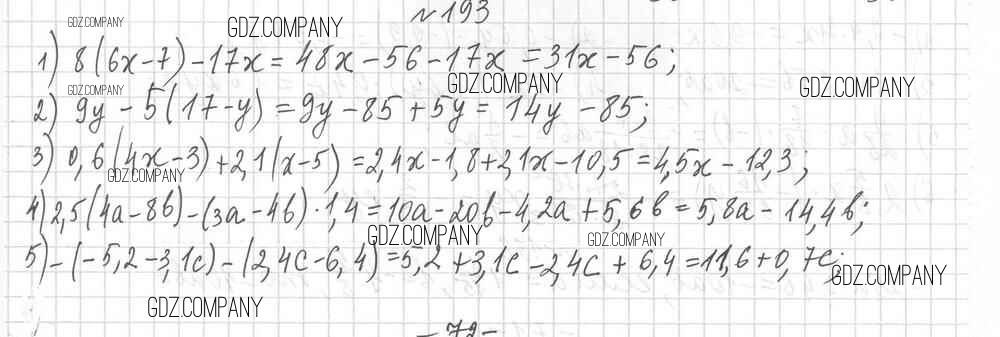 №193
GDZ.COMPANY GDZ.COMPANY
1) 8(6x-7)-17x=48x-56-17x=31x-56;
GDZ.COMPANY GDZ.COMPANY GDZ.COMPANY
2) 9y-5(17-y)=9y-85+5y=14y-85;
3) 0,6(4x-3)+2,1(x-5)=2,4x-1,8+2,1x-10,5=4,5x-12,3;
GDZ.COMPANY
4) 2,5(4a-8b)-(3a-4b)·1,4=10a-20b-4,2a+5,6b=5,8a-14,4b;
GDZ.COMPANY GDZ.COMPANY
5) -(-5,2-3,1c)-(2,4c-6,4)=5,2+3,1c-2,4c+6,4=11,6+0,7c;
GDZ.COMPANY
GDZ.COMPANY
-72-